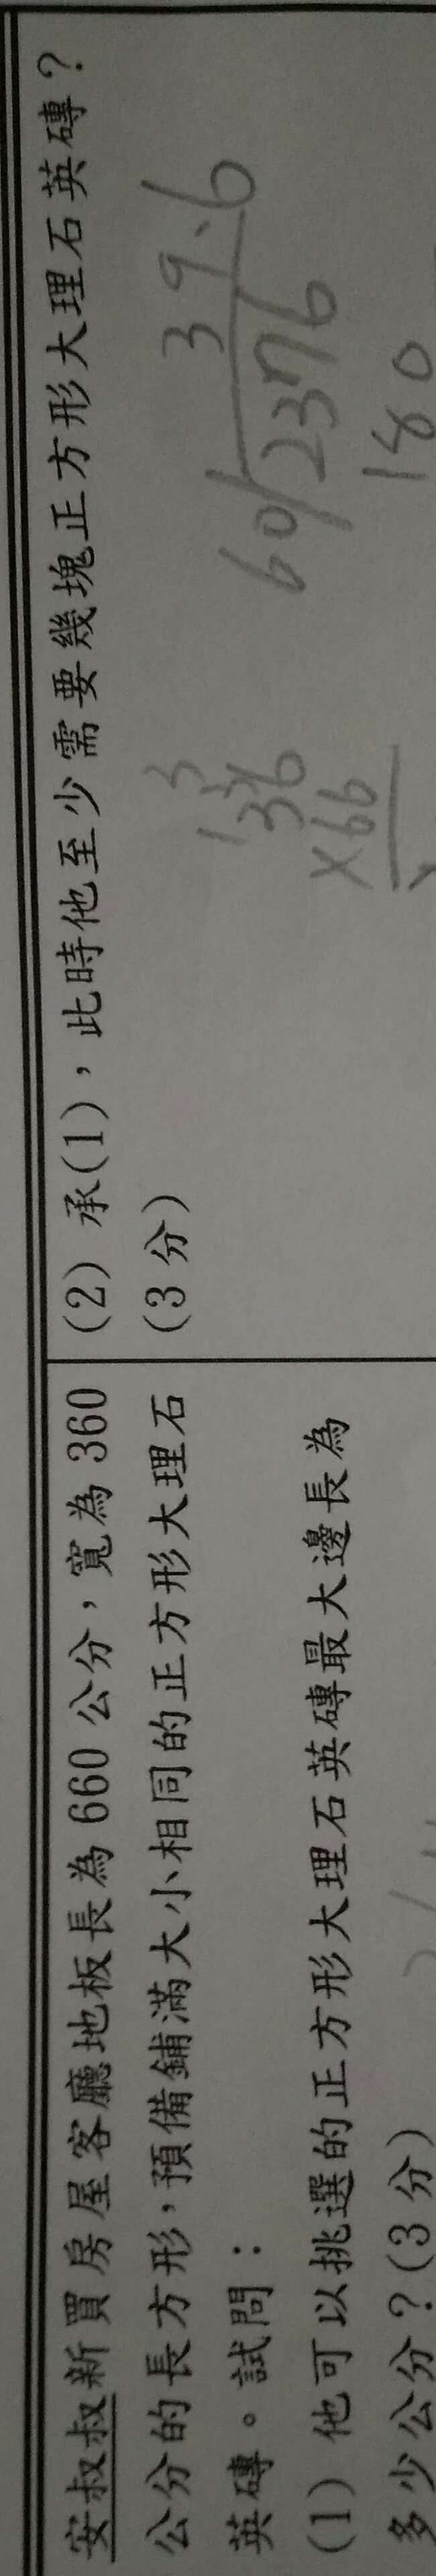 安叔叔新買房屋客廳地板長為 660 公分，寬為 360
公分的長方形，預備鋪滿大小相同的正方形大理石
英磚。試問：
(1) 他可以挑選的正方形大理石英磚最大邊長為
多少公分？(3 分)
(2) 承(1)，此時他至少需要幾塊正方形大理石英磚？
(3 分)
36
×66
39.6
60/2376
180